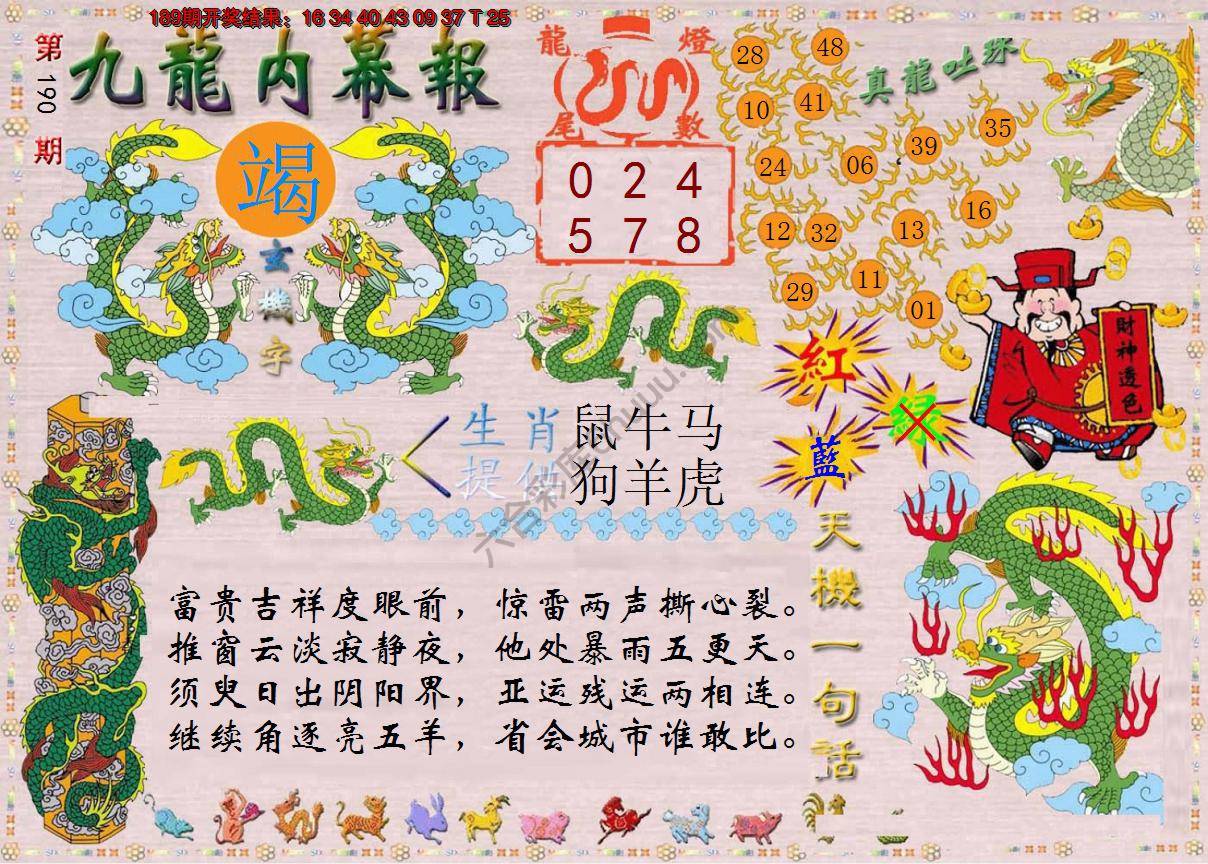 189期开奖结果：16 34 40 43 09 37 T 25
第190期
九龍内幕報
竭
玄機字
龍燈
尾數
0 2 4
5 7 8
真龍吐珠
28 48
10 41
24 06 39 35
12 32 13 16
29 11 01
財神透色
紅
绿
藍
生肖 鼠牛马
提供 狗羊虎
天機一句話
富贵吉祥度眼前，惊雷两声撕心裂。
推窗云淡寂静夜，他处暴雨五更天。
须臾日出阴阳界，亚运残运两相连。
继续角逐亮五羊，省会城市谁敢比。